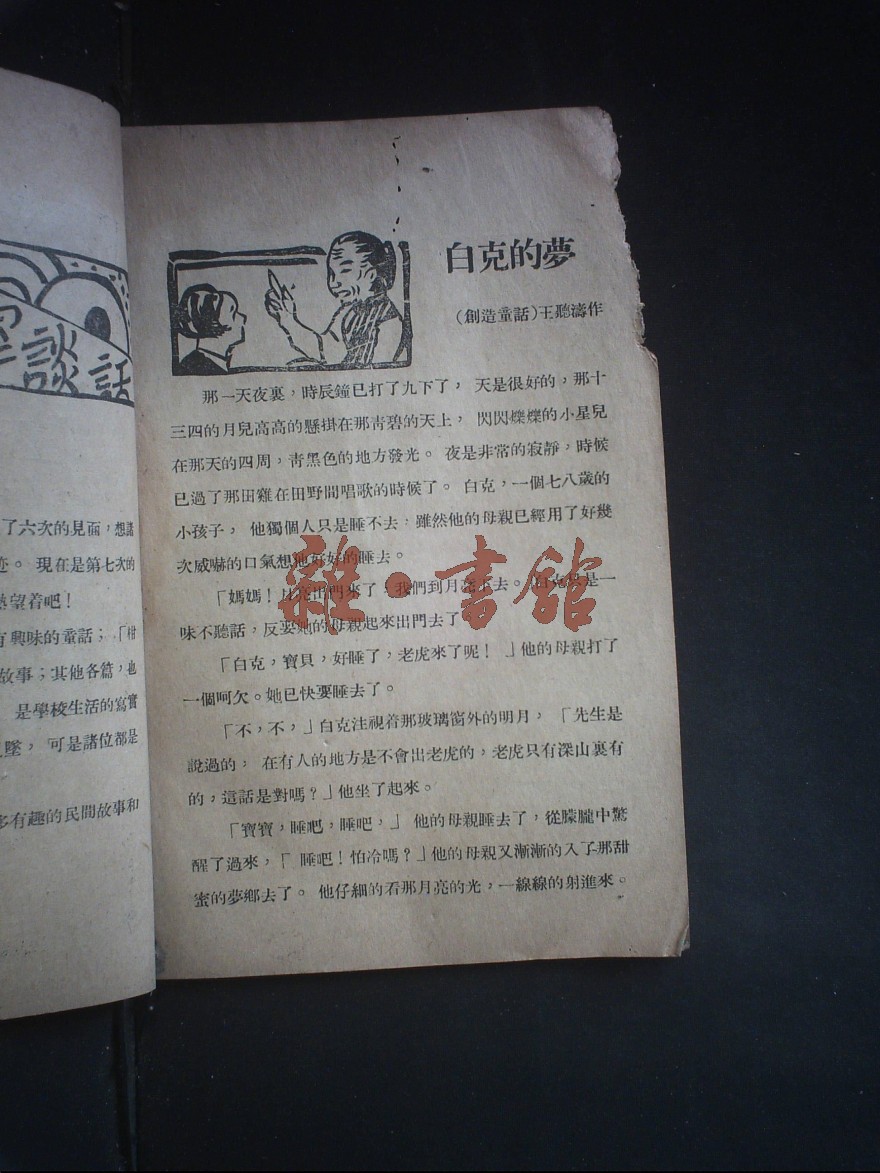 談話
了六次的見面，想諸
迹。現在是第七次的
熱望着吧！
有興味的童話；「柑
故事；其他各篇，也
是學校生活的寫實
墜，可是諸位都是
多有趣的民間故事和
白克的夢
（創造童話）王聽濤作
那一天夜裏，時辰鐘已打了九下了，天是很好的，那十
三四的月兒高高的懸掛在那靑碧的天上，閃閃爍爍的小星兒
在那天的四周，靑黑色的地方發光。夜是非常的寂靜，時候
已過了那田雞在田野間唱歌的時候了。白克，一個七八歲的
小孩子，他獨個人只是睡不去，雖然他的母親已經用了好幾
次威嚇的口氣想他好好的睡去。
「媽媽！月亮出門來了，我們到月亮下去。白克只是一
味不聽話，反要她的母親起來出門去了
「白克，寶貝，好睡了，老虎來了呢！」他的母親打了
一個呵欠。她已快要睡去了。
「不，不，」白克注視着那玻璃窗外的明月，「先生是
說過的，在有人的地方是不會出老虎的，老虎只有深山裏有
的，這話是對嗎？」他坐了起來。
「寶寶，睡吧，睡吧，」他的母親睡去了，從朦朧中驚
醒了過來，「睡吧！怕冷嗎？」他的母親又漸漸的入了那甜
蜜的夢鄉去了。他仔細的看那月亮的光，一線線的射進來。
雜·書舘